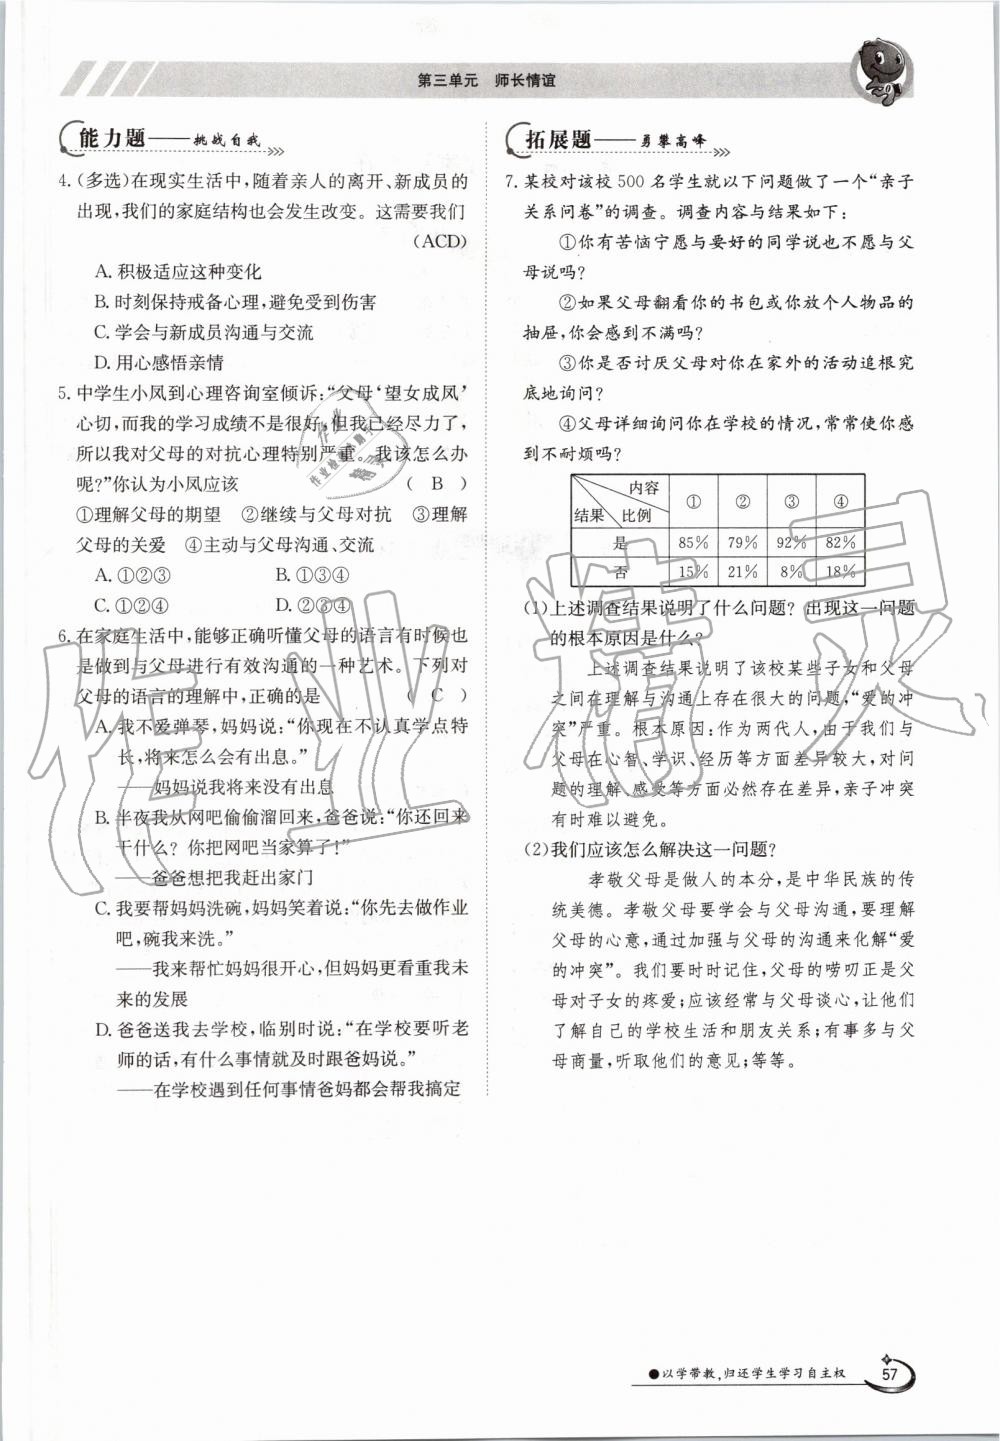 第三单元　师长情谊
能力题——挑战自我
4.(多选)在现实生活中,随着亲人的离开、新成员的
出现,我们的家庭结构也会发生改变。这需要我们
(ACD)
A. 积极适应这种变化
B. 时刻保持戒备心理,避免受到伤害
C. 学会与新成员沟通与交流
D. 用心感悟亲情
5. 中学生小凤到心理咨询室倾诉:“父母‘望女成凤’
心切,而我的学习成绩不是很好,但我已经尽力了,
所以我对父母的对抗心理特别严重。我该怎么办
呢?”你认为小凤应该 ( B )
①理解父母的期望　②继续与父母对抗　③理解
父母的关爱　④主动与父母沟通、交流
A. ①②③ B. ①③④
C. ①②④ D. ②③④
6. 在家庭生活中,能够正确听懂父母的语言有时候也
是做到与父母进行有效沟通的一种艺术。下列对
父母的语言的理解中,正确的是 ( C )
A. 我不爱弹琴,妈妈说:“你现在不认真学点特
长,将来怎么会有出息。”
——妈妈说我将来没有出息
B. 半夜我从网吧偷偷溜回来,爸爸说:“你还回来
干什么? 你把网吧当家算了!”
——爸爸想把我赶出家门
C. 我要帮妈妈洗碗,妈妈笑着说:“你先去做作业
吧,碗我来洗。”
——我来帮忙妈妈很开心,但妈妈更看重我未
来的发展
D. 爸爸送我去学校,临别时说:“在学校要听老
师的话,有什么事情就及时跟爸妈说。”
——在学校遇到任何事情爸妈都会帮我搞定
拓展题——勇攀高峰
7. 某校对该校 500 名学生就以下问题做了一个“亲子
关系问卷”的调查。调查内容与结果如下:
①你有苦恼宁愿与要好的同学说也不愿与父
母说吗?
②如果父母翻看你的书包或你放个人物品的
抽屉,你会感到不满吗?
③你是否讨厌父母对你在家外的活动追根究
底地询问?
④父母详细询问你在学校的情况,常常使你感
到不耐烦吗?
内容
结果 比例 ① ② ③ ④
是 85% 79% 92% 82%
否 15% 21% 8% 18%
(1)上述调查结果说明了什么问题? 出现这一问题
的根本原因是什么?
上述调查结果说明了该校某些子女和父母
之间在理解与沟通上存在很大的问题,“爱的冲
突”严重。根本原因:作为两代人,由于我们与
父母在心智、学识、经历等方面差异较大,对问
题的理解、感受等方面必然存在差异,亲子冲突
有时难以避免。
(2)我们应该怎么解决这一问题?
孝敬父母是做人的本分,是中华民族的传
统美德。孝敬父母要学会与父母沟通,要理解
父母的心意,通过加强与父母的沟通来化解“爱
的冲突”。我们要时时记住,父母的唠叨正是父
母对子女的疼爱;应该经常与父母谈心,让他们
了解自己的学校生活和朋友关系;有事多与父
母商量,听取他们的意见;等等。
作业精灵
●以学带教,归还学生学习自主权
57